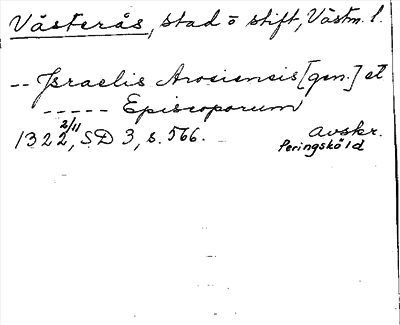 Västerås, stad o stift, Västm. l.
-- Israelis Arosiensis [gen.] et
----- Episcoporum
1322 2/11, SD 3, s. 566. avskr.
Peringsköld